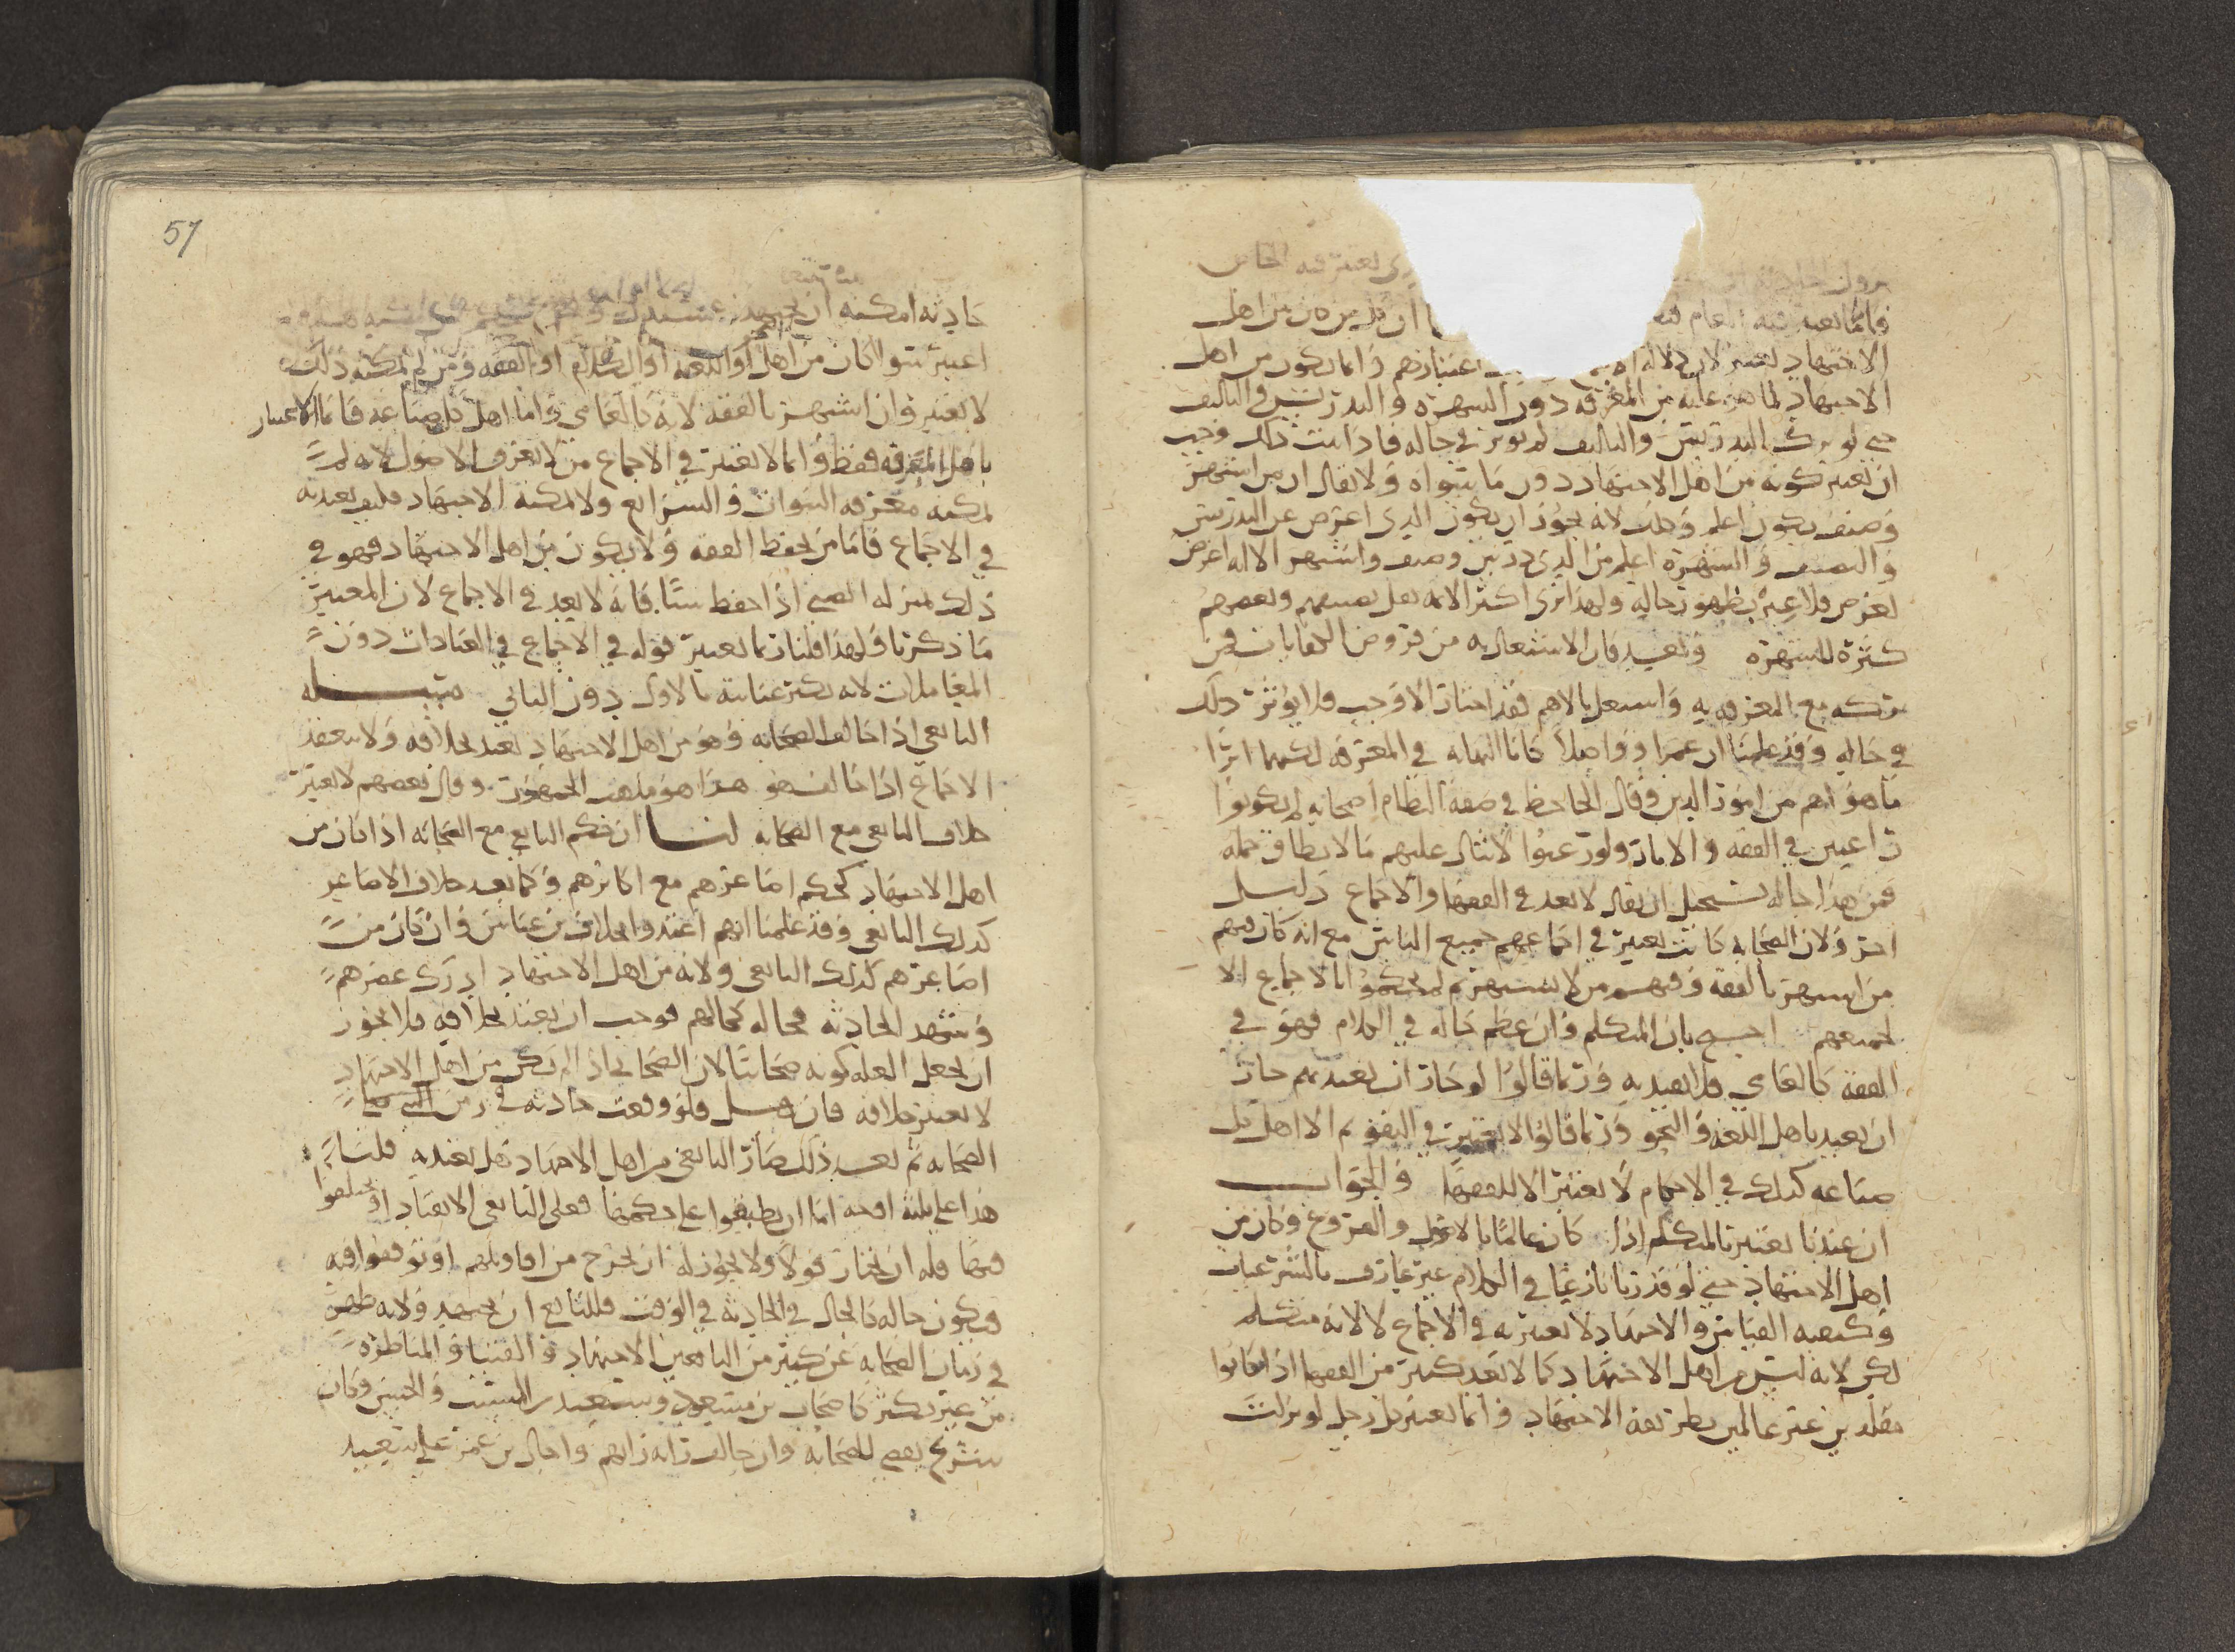 يعتبر فيه الخاص
الاجتهاد لما هم عليه من المعرفة دون الشهرة والتدريس والتاليف
حتى لو ترك التدريس والتاليف لم يوثر في حاله فاذا ثبت ذلك وجب
ان يعتبر كونه من اهل الاجتهاد دون ما سواه ولا يقال ان من اشتهر
وصنف يكون اعلم وذلك لانه يجوز ان يكون الذي اعرض عن التدريس
والتصنيف والشهرة اعلم من الذي درس وصنف واشتهر الا انه اعرض
لغرض فلا عبرة بظهور حاله ولهذا نرى اكثر الائمة يقل تصنيفهم وبعضهم
كثرة للشهرة وبعد فان الاشتغال به من فروض الكفايات فمن
تركه مع المعرفة به واشتغل بالاهم فقد اختار الاوجب فلا يوثر ذلك
في حاله وقد علمنا ان عمرا وواصلا كانا النهاية في المعرفة لكنهما اثرا
ما هو اهم من امور الدين وقال الجاحظ في صفة النظام اصحابه لم يكونوا
راغبين في الفقه والاثار ولو رغبوا لانثال عليهم ما لا يطاق حمله
فمن هذا حاله يستحيل ان يقال لا يعد في الفقها والاجماع دليل
اخر ولان الصحابة كانت تعتبر في اجماعهم جميع الناس مع انه كان فيهم
من اشتهر بالفقه وفيهم من لا يشتهر ثم لم يحكموا بالاجماع الا
لجميعهم احتج بان المتكلم وان عظم حاله في الكلام فهو في
الفقه كالعامي فلا يعتد به وربما قالوا لو جاز ان يعتد بهم جاز
ان يعتد باهل اللغة والنحو وربما قالوا لا يعتبر في التقويم الا اهل كل
صناعة كذلك في الاحكام لا يعتبر الا الفقها والجواب
ان عندنا يعتبر بالمتكلم اذا كان عالما بالاصول والفروع وكان من
اهل الاجتهاد حتى لو قدرنا بارعا في الكلام غير عارف بالشرعيات
وكيفية القياس والاجتهاد لا يعتبر به في الاجماع لا لانه متكلم
لكن لانه ليس من اهل الاجتهاد كما لا يعد كثير من الفقها اذا كانوا
مقلدين غير عالمين بطريقة الاجتهاد وانما يعتبر كل رجل لو نزلت
57
حادثة امكنه ان يجتهد
اعتبر سوا كان من اهل اللغة او الكلام او الفقه ومن لم يمكنه ذلك
لا يعتبر وان اشتهر بالفقه لانه كالعامي واما اهل كل صناعة فانما الاعتبار
باهل المعرفة فقط وانما لا يعتبر في الاجماع من لا يعرف الاصول لانه لم
يمكنه معرفة النبوات والشرايع ولا يمكنه الاجتهاد فكيف يعتد به
في الاجماع فاما من يحفظ الفقه ولا يكون من اهل الاجتهاد فهو في
ذلك بمنزلة الصبي اذا حفظ شيا فانه لا يعد في الاجماع لان المعتبر
ما ذكرنا ولهذا قلنا ربما يعتبر قوله في الاجماع في العبادات دون
المعاملات لانه يكثر عنايته بالاول دون الثاني مسألة
التابعي اذا خالف الصحابة وهو من اهل الاجتهاد يعتد بخلافه ولا ينعقد
الاجماع اذا خالف هو هذا هو مذهب الجمهور وقال بعضهم لا يعتبر
خلاف التابعي مع الصحابة لنا ان حكم التابعي مع الصحابة اذا كان من
اهل الاجتهاد كحكم اصاغرهم مع اكابرهم وكما يعتد بخلاف الاصاغر
كذلك التابعي وقد علمنا انهم اعتدوا بخلاف بن عباس وان كان من
اصاغرهم كذلك التابعي ولانه من اهل الاجتهاد ادرك عصرهم
وشهد الحادثة فحاله كحالهم فوجب ان يعتد بخلافه فلا يجوز
ان يجعل العلة كونه صحابيا لان الصحابي اذا لم يكن من اهل الاجتهاد
لا يعتبر خلافه فان قيل فلو وقعت حادثة في زمن
الصحابة ثم بعد ذلك صار التابعي من اهل الاجتهاد هل يعتد به قلنا
هذا على ثلثة اوجه اما ان يطبقوا على حكمها فعلى التابعي الانقياد او يختلفوا
فيها فله ان يختار قولا ولا يجوز له ان يخرج من اقاويلهم او توقفوا فيه
فيكون حاله كالحال في الحادثة في الوقت فللتابعي ان يجتهد ولانه ظهر
في زمان الصحابة عن كثير من التابعين الاجتهاد والفتيا والمناظرة
من غير نكير كاصحاب بن مسعود وسعيد بن المسيب والحسن وكان
شريح يقضي للصحابة وان خالف رايه رايهم واحال بن عمر على سعيد